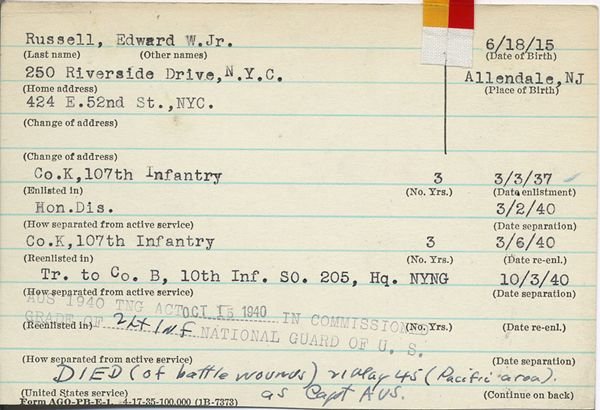 Russell, Edward W.Jr. 6/18/15
(Last name) (Other names) (Date of Birth)
250 Riverside Drive,N.Y.C. Allendale,NJ
(Home address) (Place of Birth)
424 E.52nd St.,NYC.
(Change of address)
(Change of address)
Co.K,107th Infantry 3 3/3/37
(Enlisted in) (No. Yrs.) (Date enlistment)
Hon.Dis. 3/2/40
(How separated from active service) (Date separation)
Co.K,107th Infantry 3 3/6/40
(Reenlisted in) (No. Yrs.) (Date re-enl.)
Tr. to Co. B, 10th Inf. SO. 205, Hq. NYNG 10/3/40
(How separated from active service) (Date separation)
AUS 1940 TNG ACT OCT 15 1940 IN COMMISSIONED
GRADE OF 2Lt Inf NATIONAL GUARD OF U. S.
(Reenlisted in) (No. Yrs.) (Date re-enl.)
(How separated from active service) (Date separation)
DIED (of battle wounds) 21 May 45 (Pacific area).
(United States service) as Capt AUS. (Continue on back)
Form AGO-PB-E-1. 4-17-35-100,000 (1B-7373)